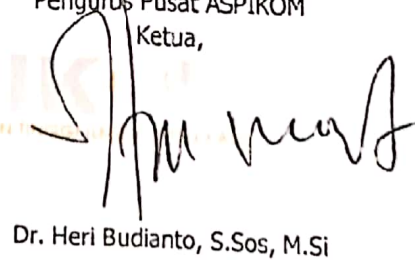 Pengurus Pusat ASPIKOM
Ketua,
Dr. Heri Budianto, S.Sos, M.Si